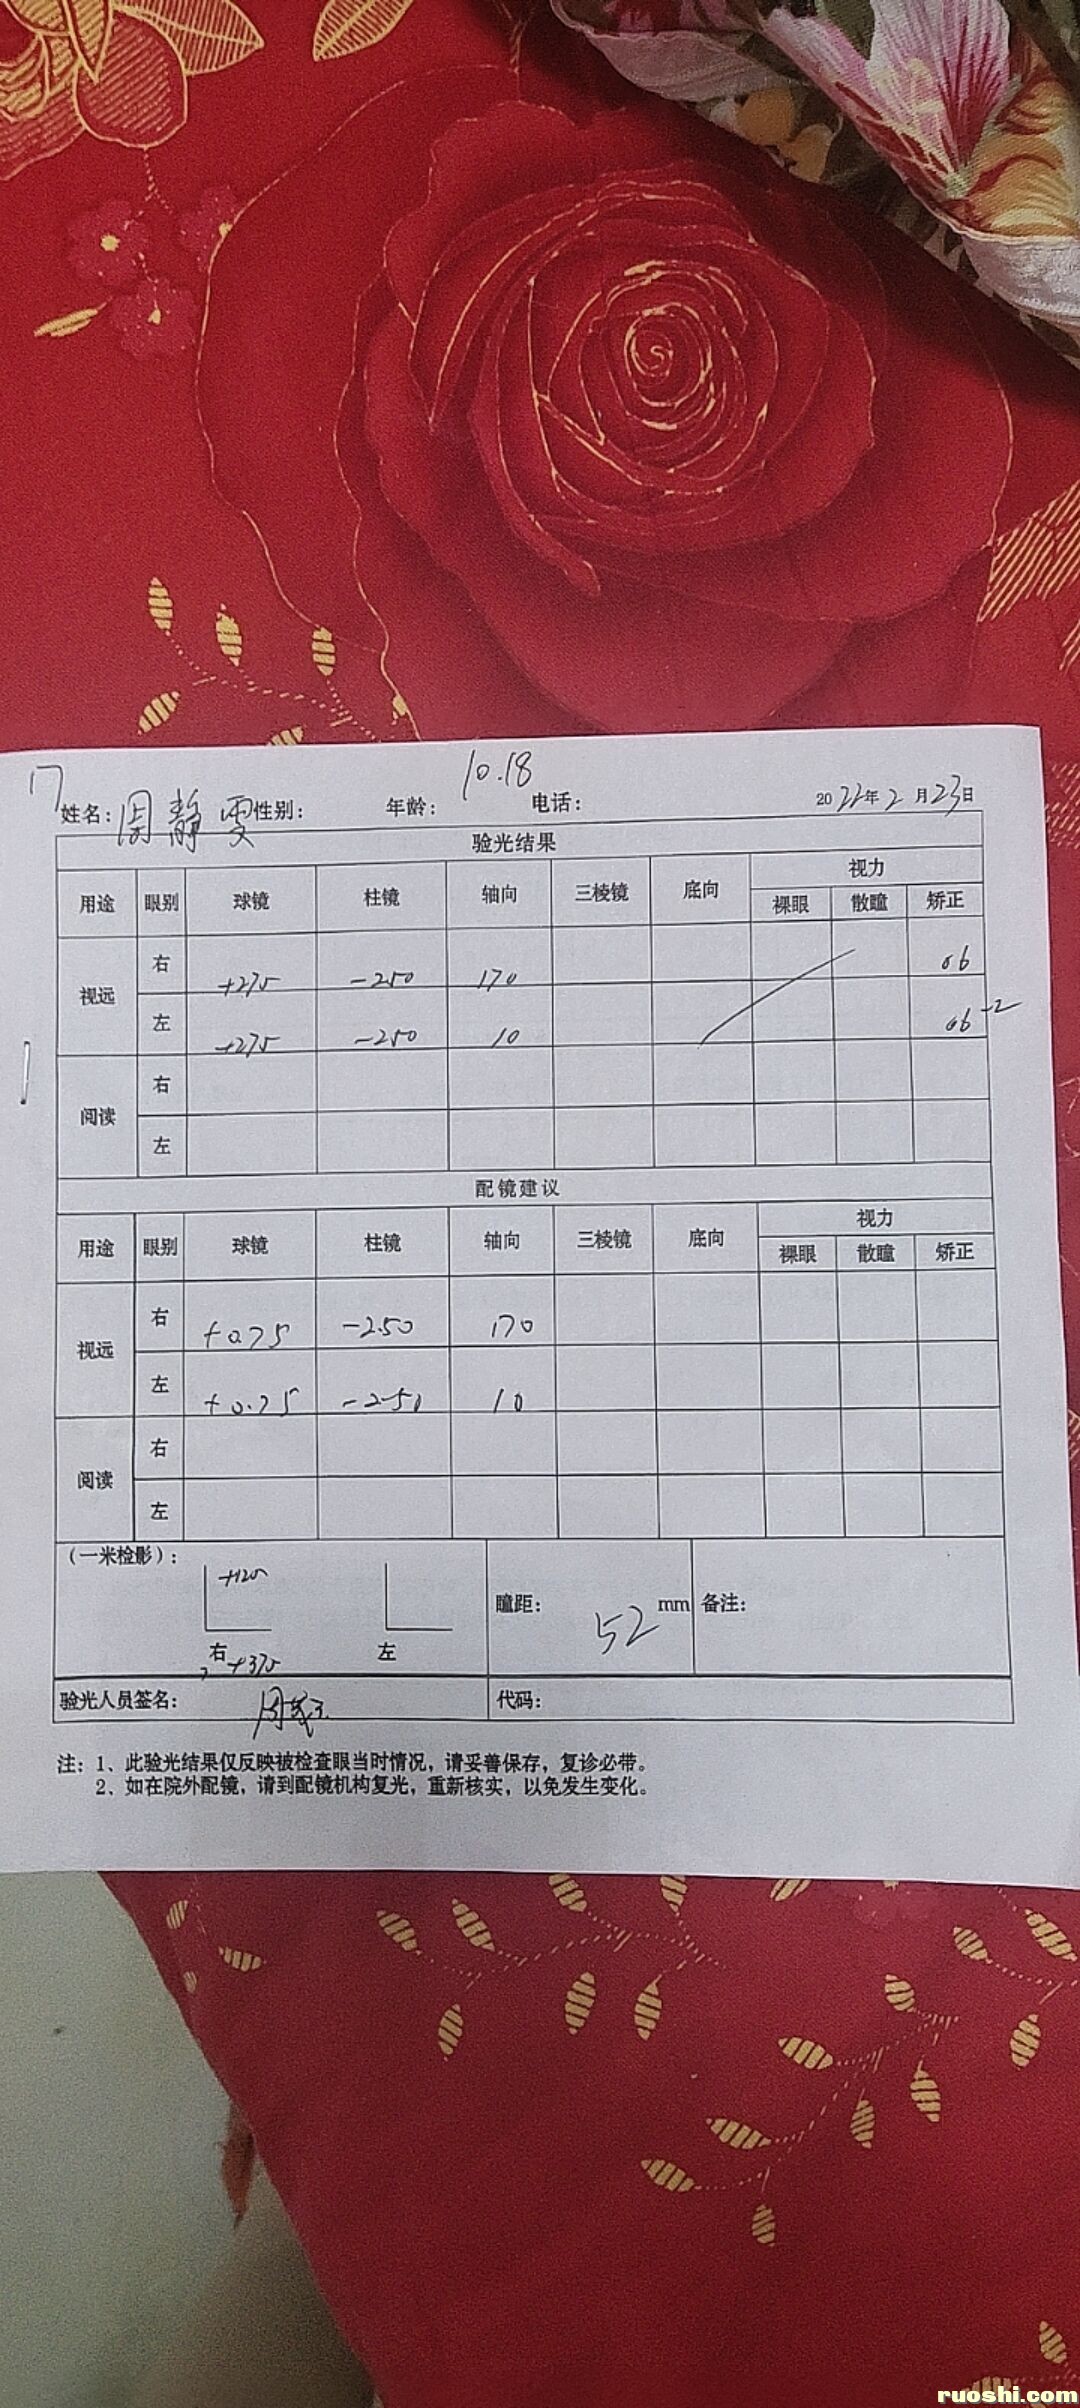 17
10.18
姓名：周静雯 性别： 年龄： 电话： 2022年2月23日
验光结果
用途 眼别 球镜 柱镜 轴向 三棱镜 底向 视力
裸眼 散瞳 矫正
视远 右 +275 -250 170 06
左 +275 -250 10 06-2
阅读 右
左
配镜建议
用途 眼别 球镜 柱镜 轴向 三棱镜 底向 视力
裸眼 散瞳 矫正
视远 右 +0.75 -2.50 170
左 +0.75 -2.50 10
阅读 右
左
（一米检影）： +125 瞳距： 52 mm 备注：
右 +375 左
验光人员签名： 代码：
注：1、此验光结果仅反映被检查眼当时情况，请妥善保存，复诊必带。
2、如在院外配镜，请到配镜机构复光，重新核实，以免发生变化。
ruoshi.com